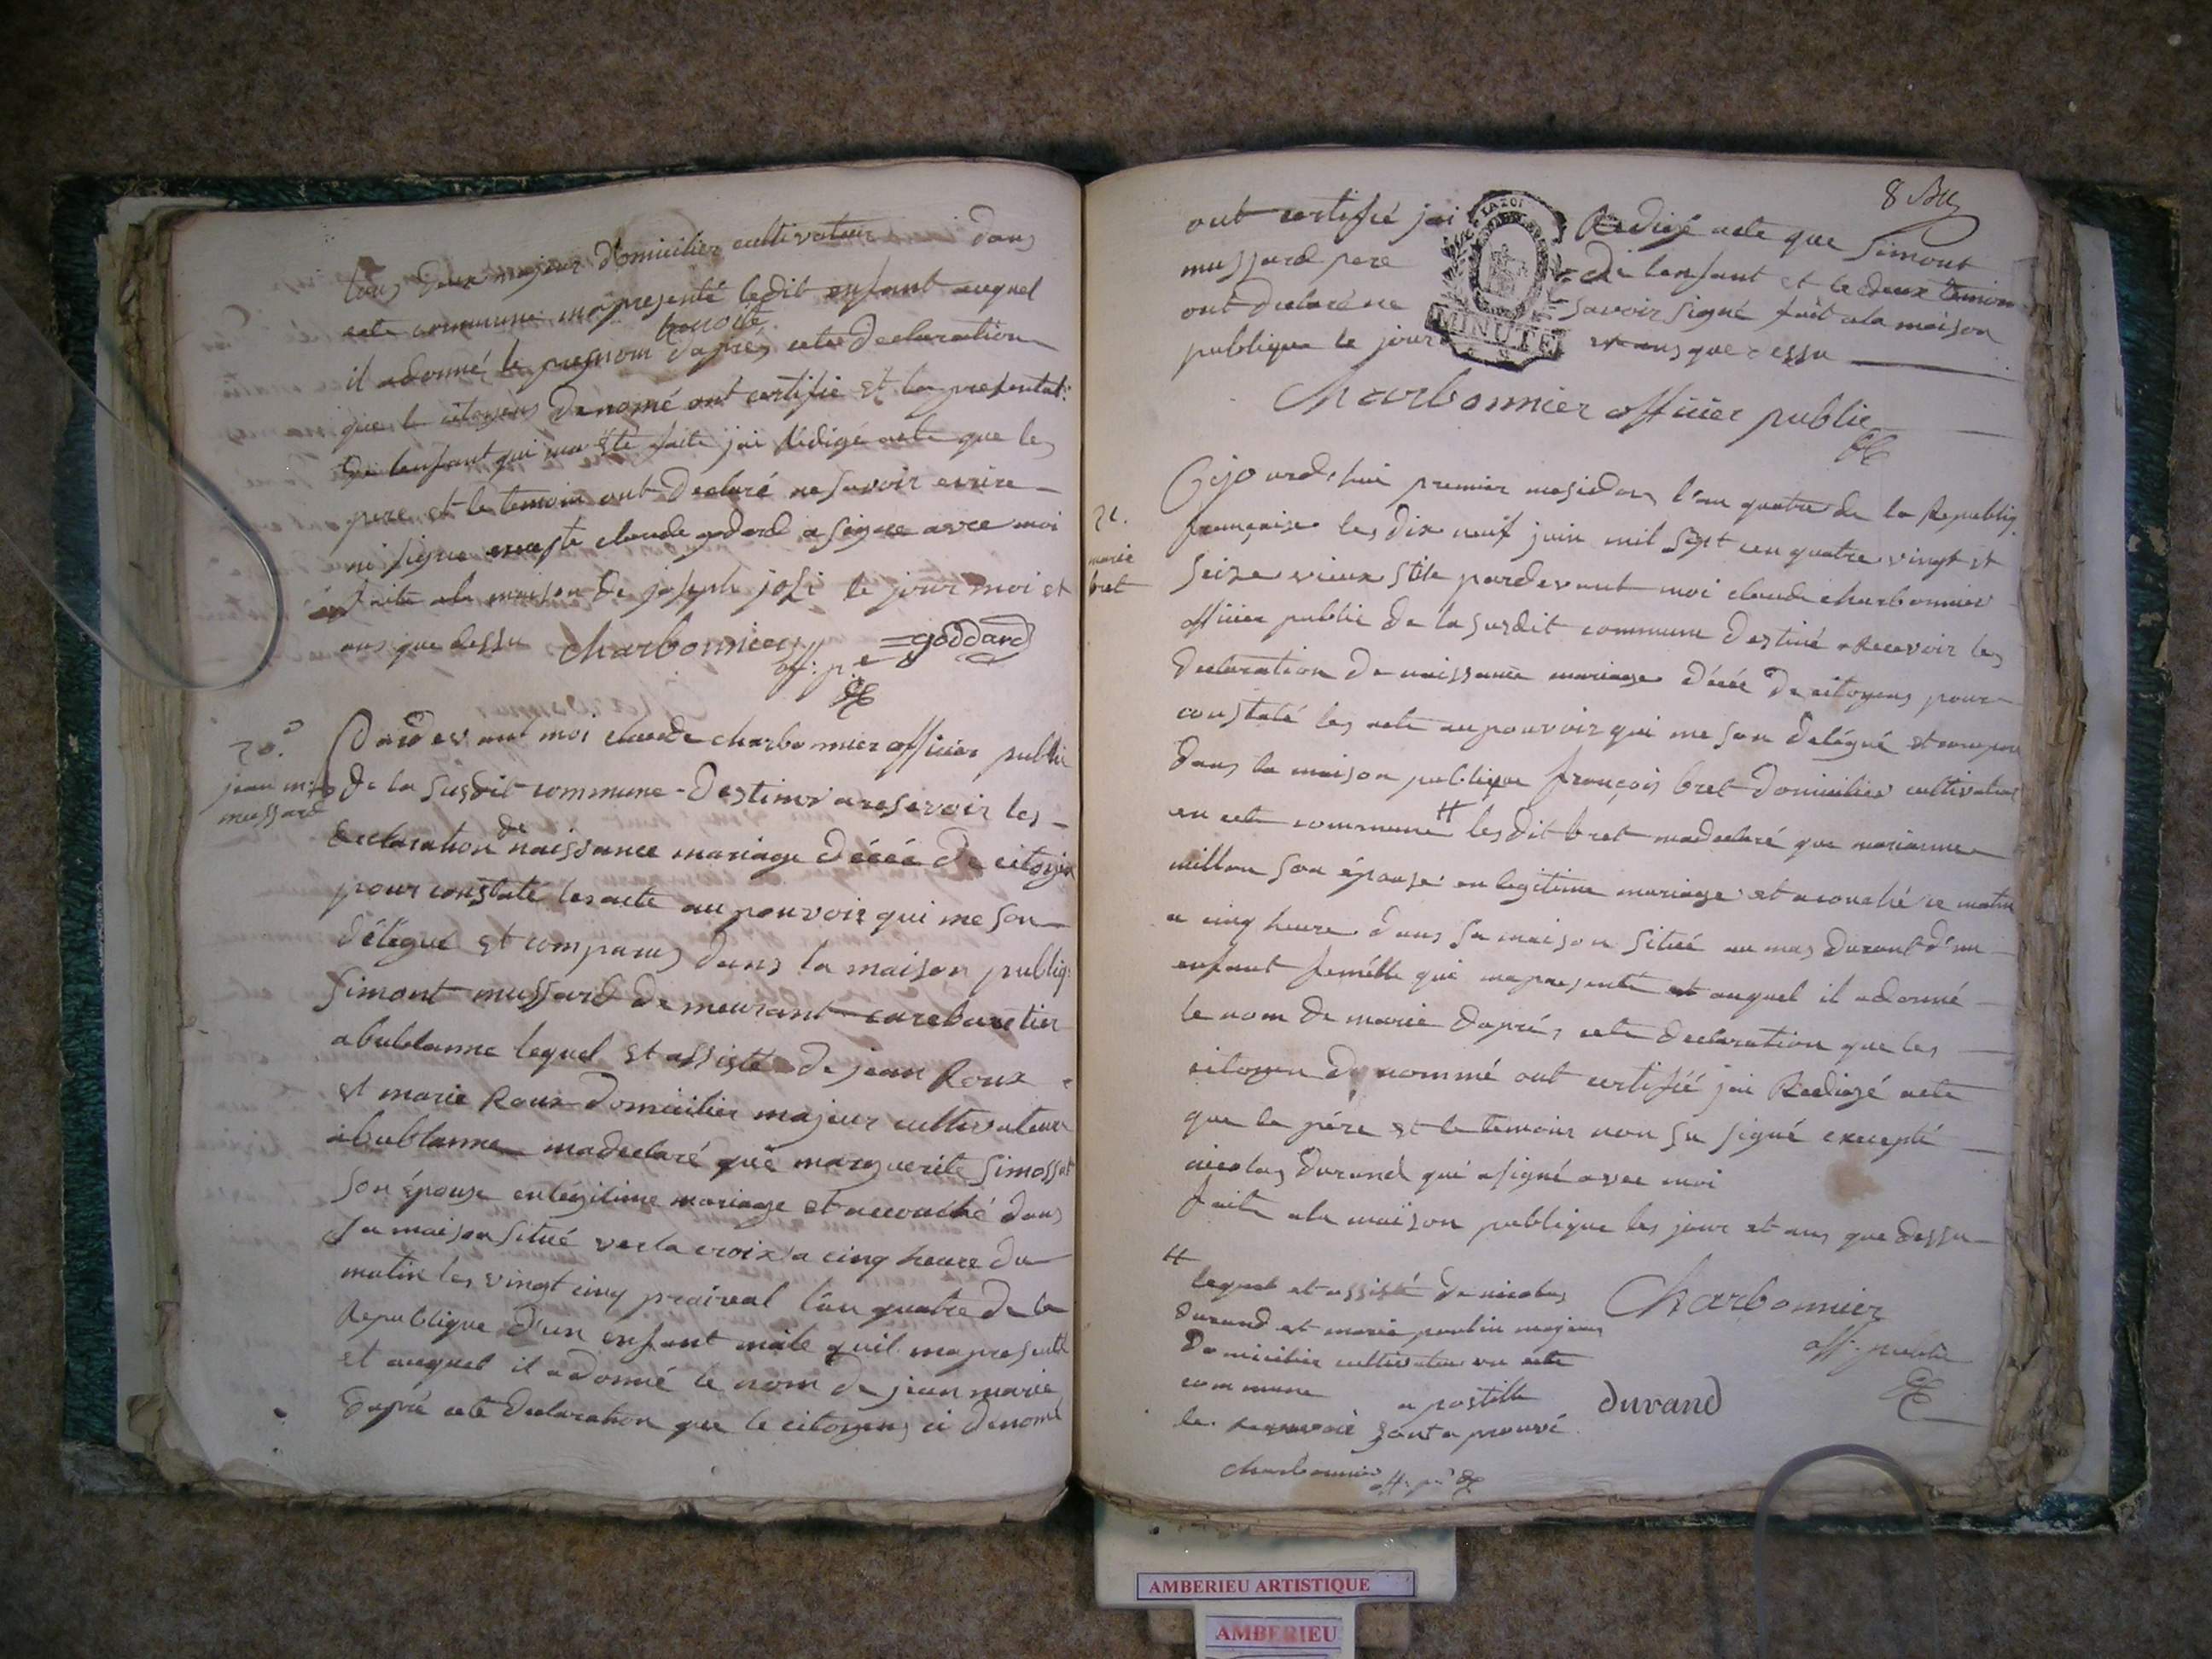 tous deux majeur domicilier cultivateur dans
cete commune ma presenté ledit enfant auquel
il a donné le presnom benoite d'apres cete declaration
que le citoyens denomé ont certifie et la presentat:
de lenfant qui ma été faite jai rédigé acte que les
pere et le temoin ont declaré ne savoir ecrire
ni signe exepte claude godard a signee avec moi
faite ala maison de joseph josi le jour moi et
ans que dessu charbonnier off. p. goddard
20.
jean m
mussard
Pardevant moi claude charbonnier officier public
de la susdit commune destiner a reservoir les
declaration de naissance mariage décée de citoyen
pour constaté les acte au pouvoir qui me son
délégué et comparus dans la maison publiq:
Simont mussard demeurant carebaretier
a bublanne lequel et assisté de jean Roux
et marie Roux domicilier majeur cultivateur
a bublanne ma declaré que marguerite Simossat
son épouse en légitime mariage et accouché dans
sa maison situé ver la croix a cinq heure du
matin les vingt cinq praireal l'an quatre de la
Republique d'un enfant male quil ma presenté
et auquel il a donné le nom de jean marie
dapré cete declaration que le citoyens ci denomé
8
ont certifié jai Redigé acte que Simont
mussard pere de lenfant et le deux temoin
ont declaré ne savoir signé fait ala maison
publique le jour et ans que dessu
LA LOI
MINUTE
Charbonnier officier public
21.
marie
bret
Cejourdhui premier mesidor l'an quatre de la Republiq
française les dix neuf juin mil sept cen quatre vingt et
seize vieux stile pardevant moi claude charbonnier
officier public de la susdit commune destiné a Recevoir les
declaration de naissance mariage décée de citoyens pour
constaté les acte au pouvoir qui me son delégué et comparu
dans la maison publique françois bret domicilier cultivateur
en cete commune # lesdit bret ma declaré que marianne
millon son épouse en legitime mariage et acouché ce matin
a cinq heure dans sa maison situé au mas durant d'un
enfant femélle qui ma presenté et auquel il a donné
le nom de marie daprés cete declaration que les
citoyen denommé ont certifié jai Redigé acte
que le pére et le temoins non su signé excepté
nicolas durand qui a signé avec moi
faite ala maison publique les jour et ans que dessu
#
lequel et assisté de nicolas
durand et marie poulin majeur
domicilier cultivateur en cete
commune a postille
le Renvoié sont a prouvé
charbonnier off. p.
Charbonnier
off. public
durand
AMBERIEU ARTISTIQUE
AMBERIEU